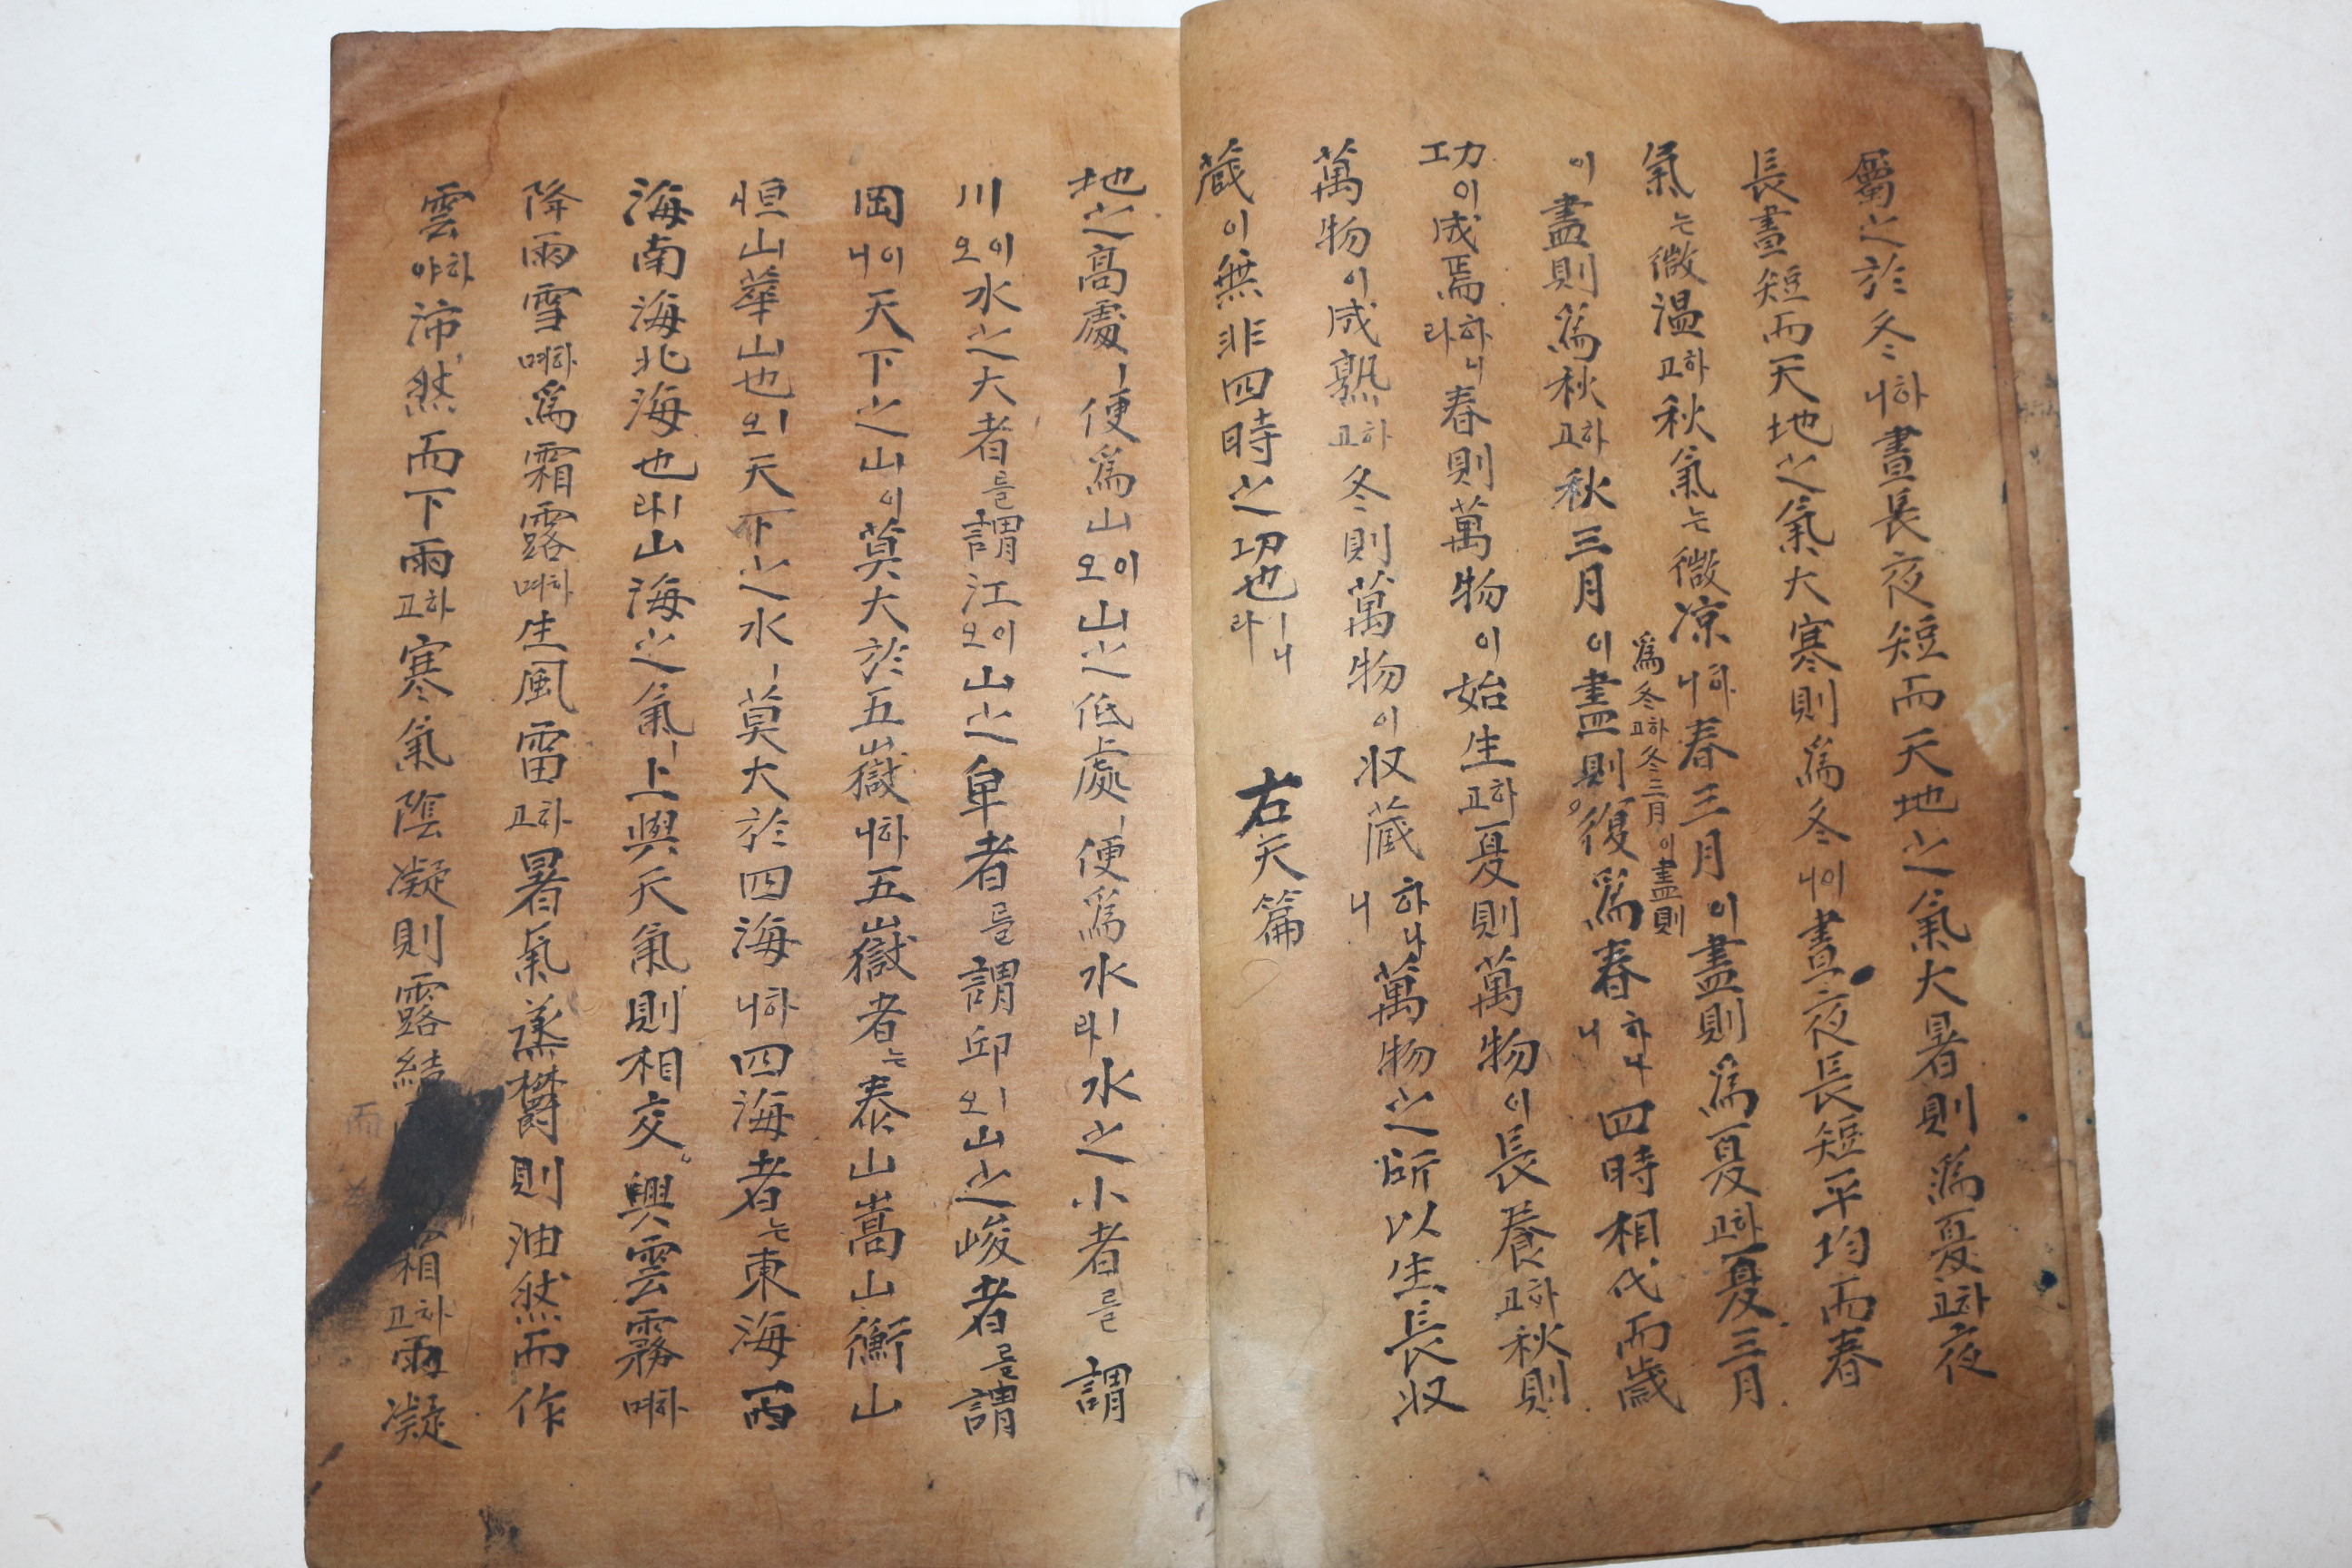 屬之於冬하니晝長夜短而天地之氣大暑則爲夏하고夜
長晝短而天地之氣大寒則爲冬이니晝夜長短平均而春
氣는微温하고秋氣는微凉하니春三月이盡則爲夏하고夏三月
이盡則爲秋하고秋三月이盡則復爲春하나니四時相代而歲
爲冬하고冬三月이盡則
功이成焉하니라春則萬物이始生하고夏則萬物이長養하고秋則
萬物이成熟하고冬則萬物이収藏하나니萬物之所以生長収
蔵이無非四時之功也ㅣ니라 右天篇
地之高處ㅣ便爲山이오山之低處ㅣ便爲水ㅣ라水之小者를謂
川이오水之大者를謂江이오山之卑者를謂邱ㅣ오山之峻者를謂
岡이니天下之山이莫大於五嶽하니五嶽者는泰山嵩山衡山
恒山華山也ㅣ오天下之水ㅣ莫大於四海하니四海者는東海西
海南海北海也ㅣ라山海之氣ㅣ上與天氣則相交興雲霧하며
降雨雪하며爲霜露하며生風雷하고暑氣蒸欝則油然而作
雲하야沛然而下雨하고寒氣陰凝則露結霜하고雨凝
而